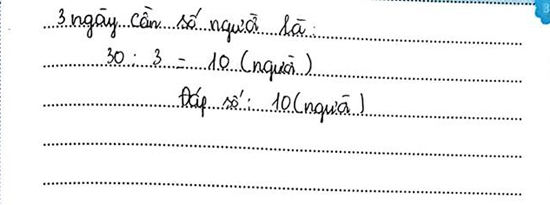 3 ngày cần số người là:
30 : 3 = 10 (người)
Đáp số: 10 (người)